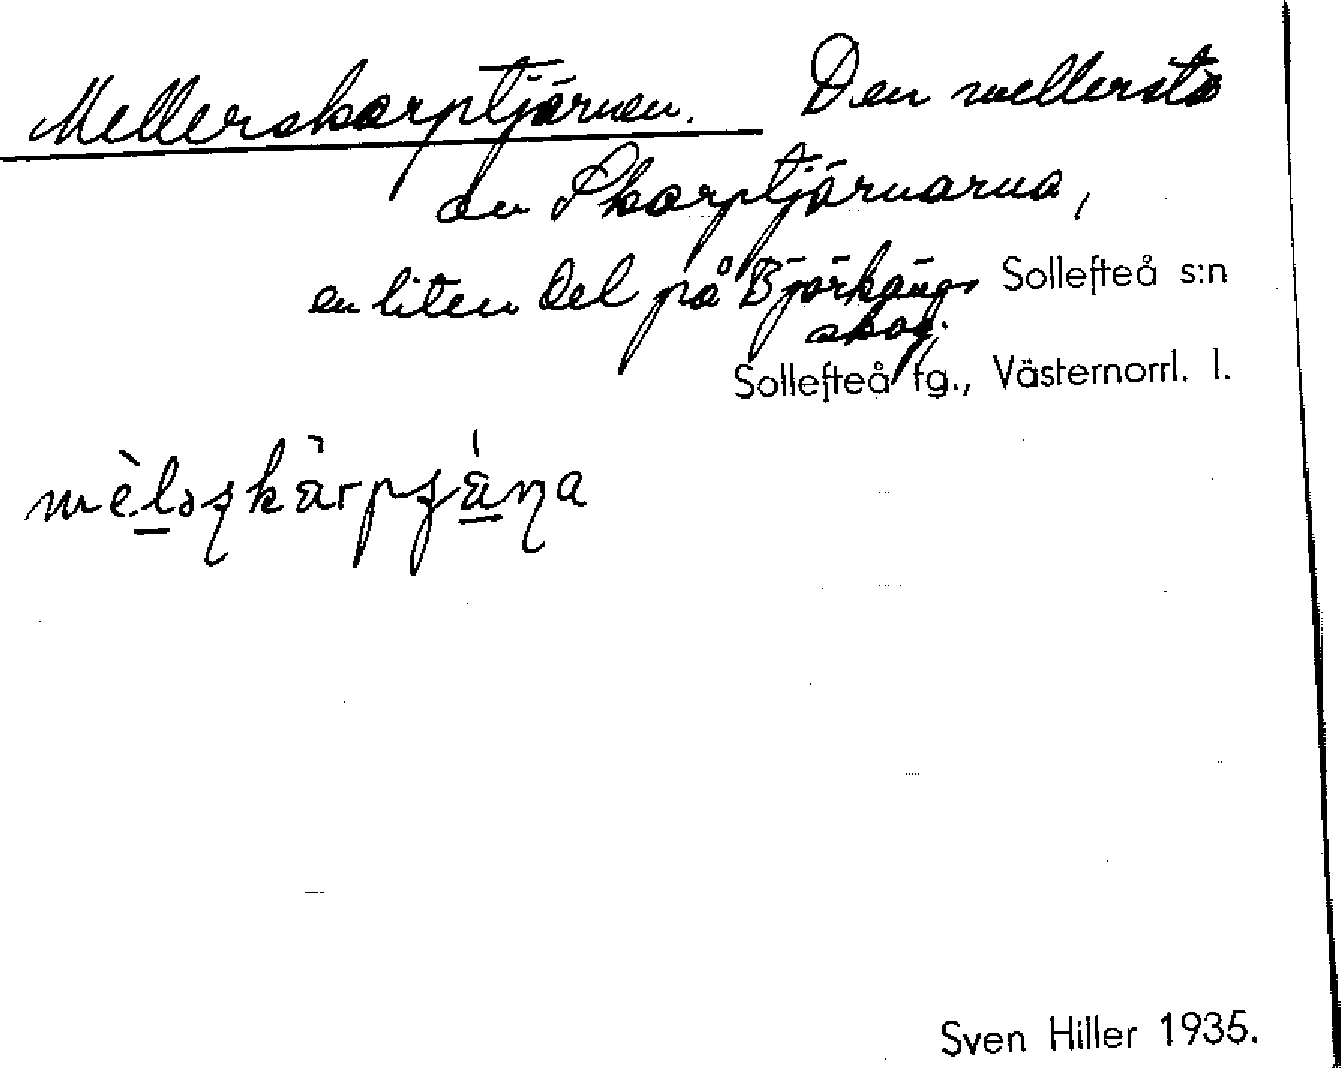 Mellerskarptjärnen. Den mellersta
av Skarptjärnarna,
en liten del på Björkängs Sollefteå s:n
skog.
Sollefteå fg., Västernorrl. l.
Sven Hiller 1935.